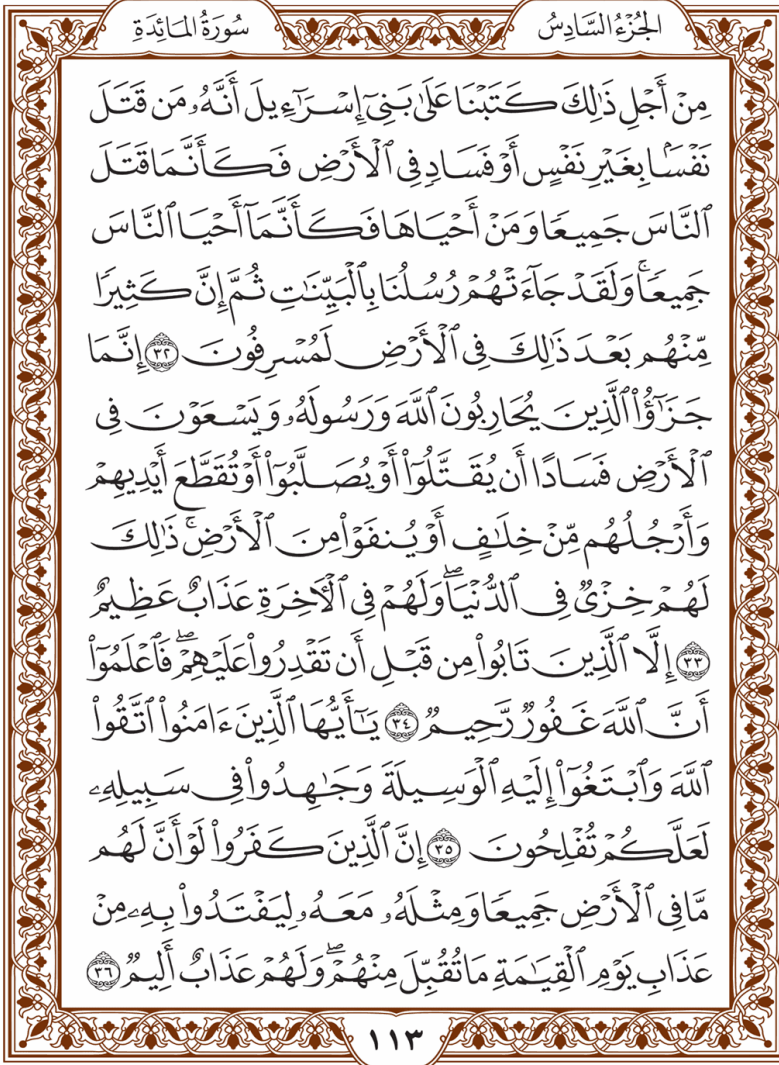 الجُزْءُ السَّادِسُ
سُورَةُ المَائِدَةِ
مِنْ أَجْلِ ذَٰلِكَ كَتَبْنَا عَلَىٰ بَنِىٓ إِسْرَٰٓءِيلَ أَنَّهُۥ مَن قَتَلَ
نَفْسَۢا بِغَيْرِ نَفْسٍ أَوْ فَسَادٍ فِى ٱلْأَرْضِ فَكَأَنَّمَا قَتَلَ
ٱلنَّاسَ جَمِيعًا وَمَنْ أَحْيَاهَا فَكَأَنَّمَآ أَحْيَا ٱلنَّاسَ
جَمِيعًاۚ وَلَقَدْ جَآءَتْهُمْ رُسُلُنَا بِٱلْبَيِّنَٰتِ ثُمَّ إِنَّ كَثِيرًا
مِّنْهُم بَعْدَ ذَٰلِكَ فِى ٱلْأَرْضِ لَمُسْرِفُونَ ٣٢ إِنَّمَا
جَزَٰٓؤُا۟ ٱلَّذِينَ يُحَارِبُونَ ٱللَّهَ وَرَسُولَهُۥ وَيَسْعَوْنَ فِى
ٱلْأَرْضِ فَسَادًا أَن يُقَتَّلُوٓا۟ أَوْ يُصَلَّبُوٓا۟ أَوْ تُقَطَّعَ أَيْدِيهِمْ
وَأَرْجُلُهُم مِّنْ خِلَٰفٍ أَوْ يُنفَوْا۟ مِنَ ٱلْأَرْضِۚ ذَٰلِكَ
لَهُمْ خِزْىٌ فِى ٱلدُّنْيَاۖ وَلَهُمْ فِى ٱلْءَاخِرَةِ عَذَابٌ عَظِيمٌ
٣٣ إِلَّا ٱلَّذِينَ تَابُوا۟ مِن قَبْلِ أَن تَقْدِرُوا۟ عَلَيْهِمْۖ فَٱعْلَمُوٓا۟
أَنَّ ٱللَّهَ غَفُورٌ رَّحِيمٌ ٣٤ يَٰٓأَيُّهَا ٱلَّذِينَ ءَامَنُوا۟ ٱتَّقُوا۟
ٱللَّهَ وَٱبْتَغُوٓا۟ إِلَيْهِ ٱلْوَسِيلَةَ وَجَٰهِدُوا۟ فِى سَبِيلِهِۦ
لَعَلَّكُمْ تُفْلِحُونَ ٣٥ إِنَّ ٱلَّذِينَ كَفَرُوا۟ لَوْ أَنَّ لَهُم
مَّا فِى ٱلْأَرْضِ جَمِيعًا وَمِثْلَهُۥ مَعَهُۥ لِيَفْتَدُوا۟ بِهِۦ مِنْ
عَذَابِ يَوْمِ ٱلْقِيَٰمَةِ مَا تُقُبِّلَ مِنْهُمْۖ وَلَهُمْ عَذَابٌ أَلِيمٌ ٣٦
١١٣